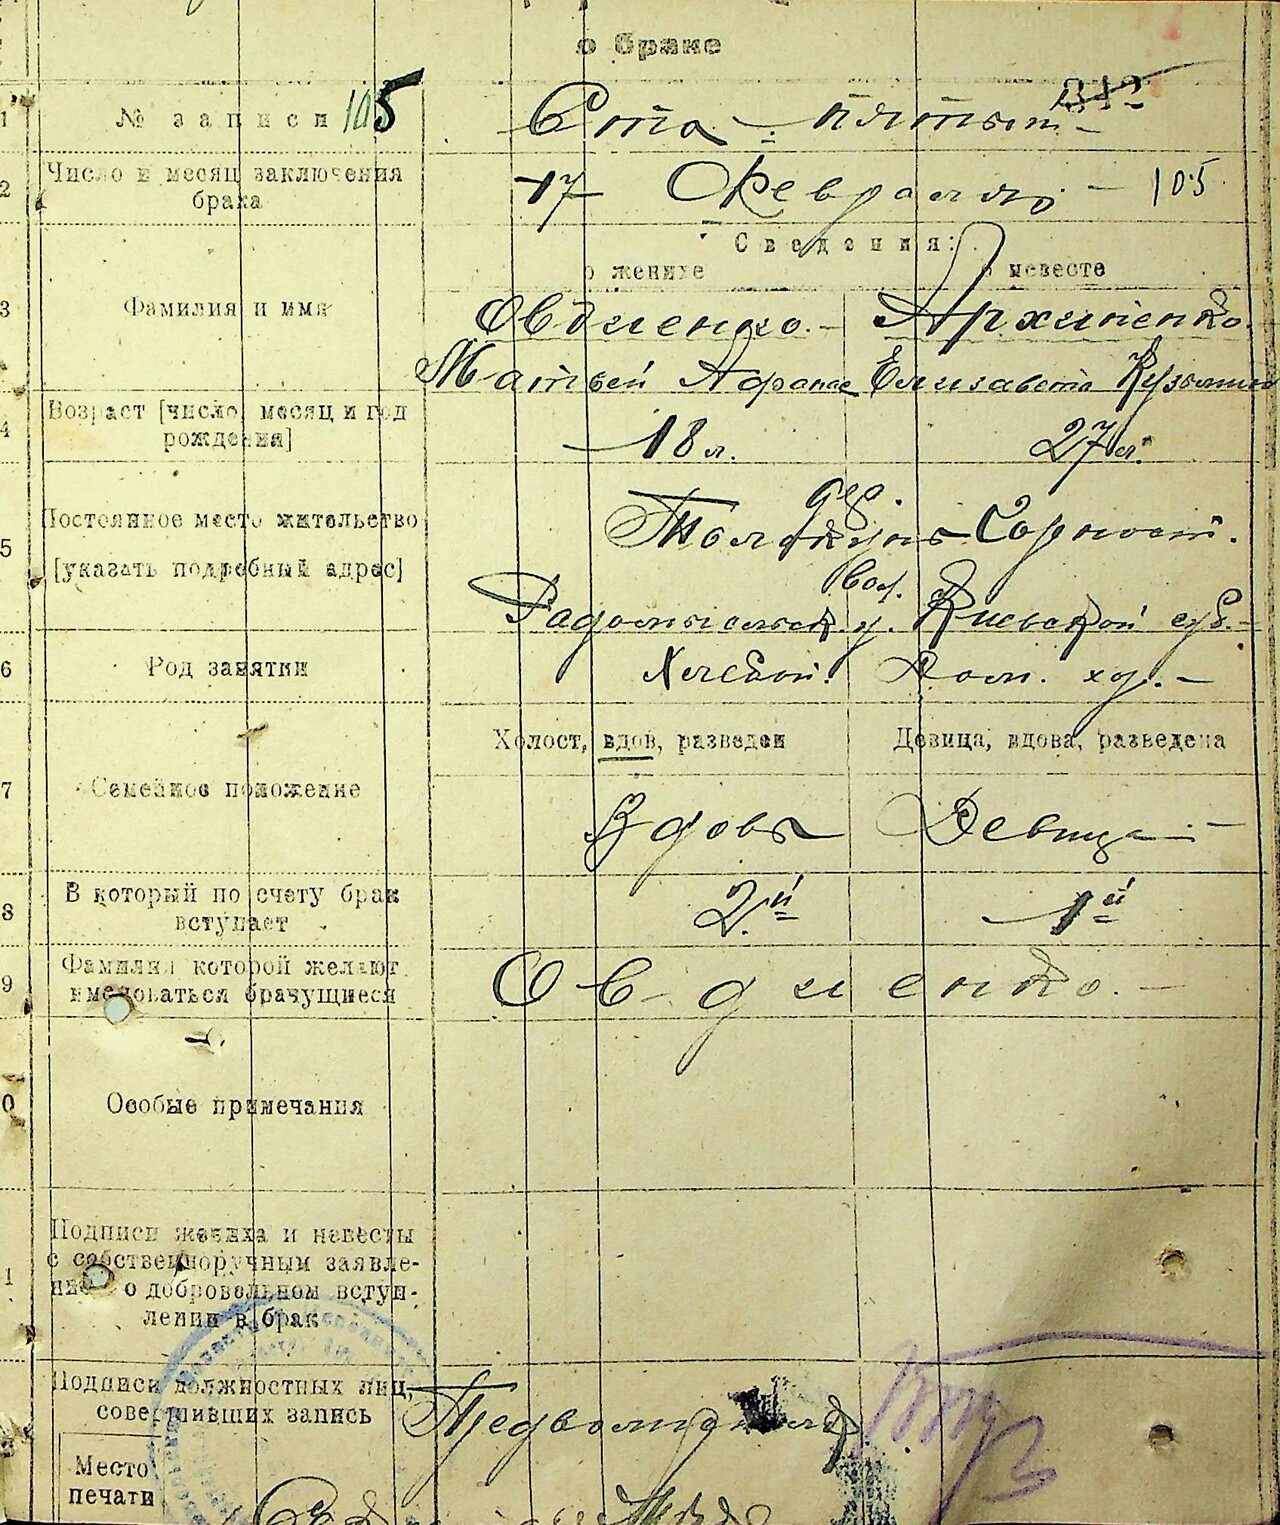 о браке
342
1 № записи 105 Ста пятый
2 Число и месяц заключения брака 17 Февраля 105
Сведения:
о женихе о невесте
3 Фамилия и имя Овдиенко. Архипенко.
Матвей Афанас Елизавета Кузьмин
4 Возраст [число, месяц и год рождения] 18 л. 27 л.
5 Постоянное место жительство
дер.
Горност.
[указать подребный адрес]
вол.
Радомысльск. у. Киевской губ.
6 Род занятий Хлебоп. Дом. хоз.
Холост, вдов, разведен Девица, вдова, разведена
7 Семейное положение Вдовъ Девица
8 В который по счету брак вступает 2й 1й
9 Фамилия которой желают именоваться брачущиеся Овдиенко.
0 Особые примечания
1 Подписи жениха и невесты
с собственноручным заявле-
нием о добровольном вступ-
лении в брак
Подписи должностных лиц,
совершивших запись
Место
печати